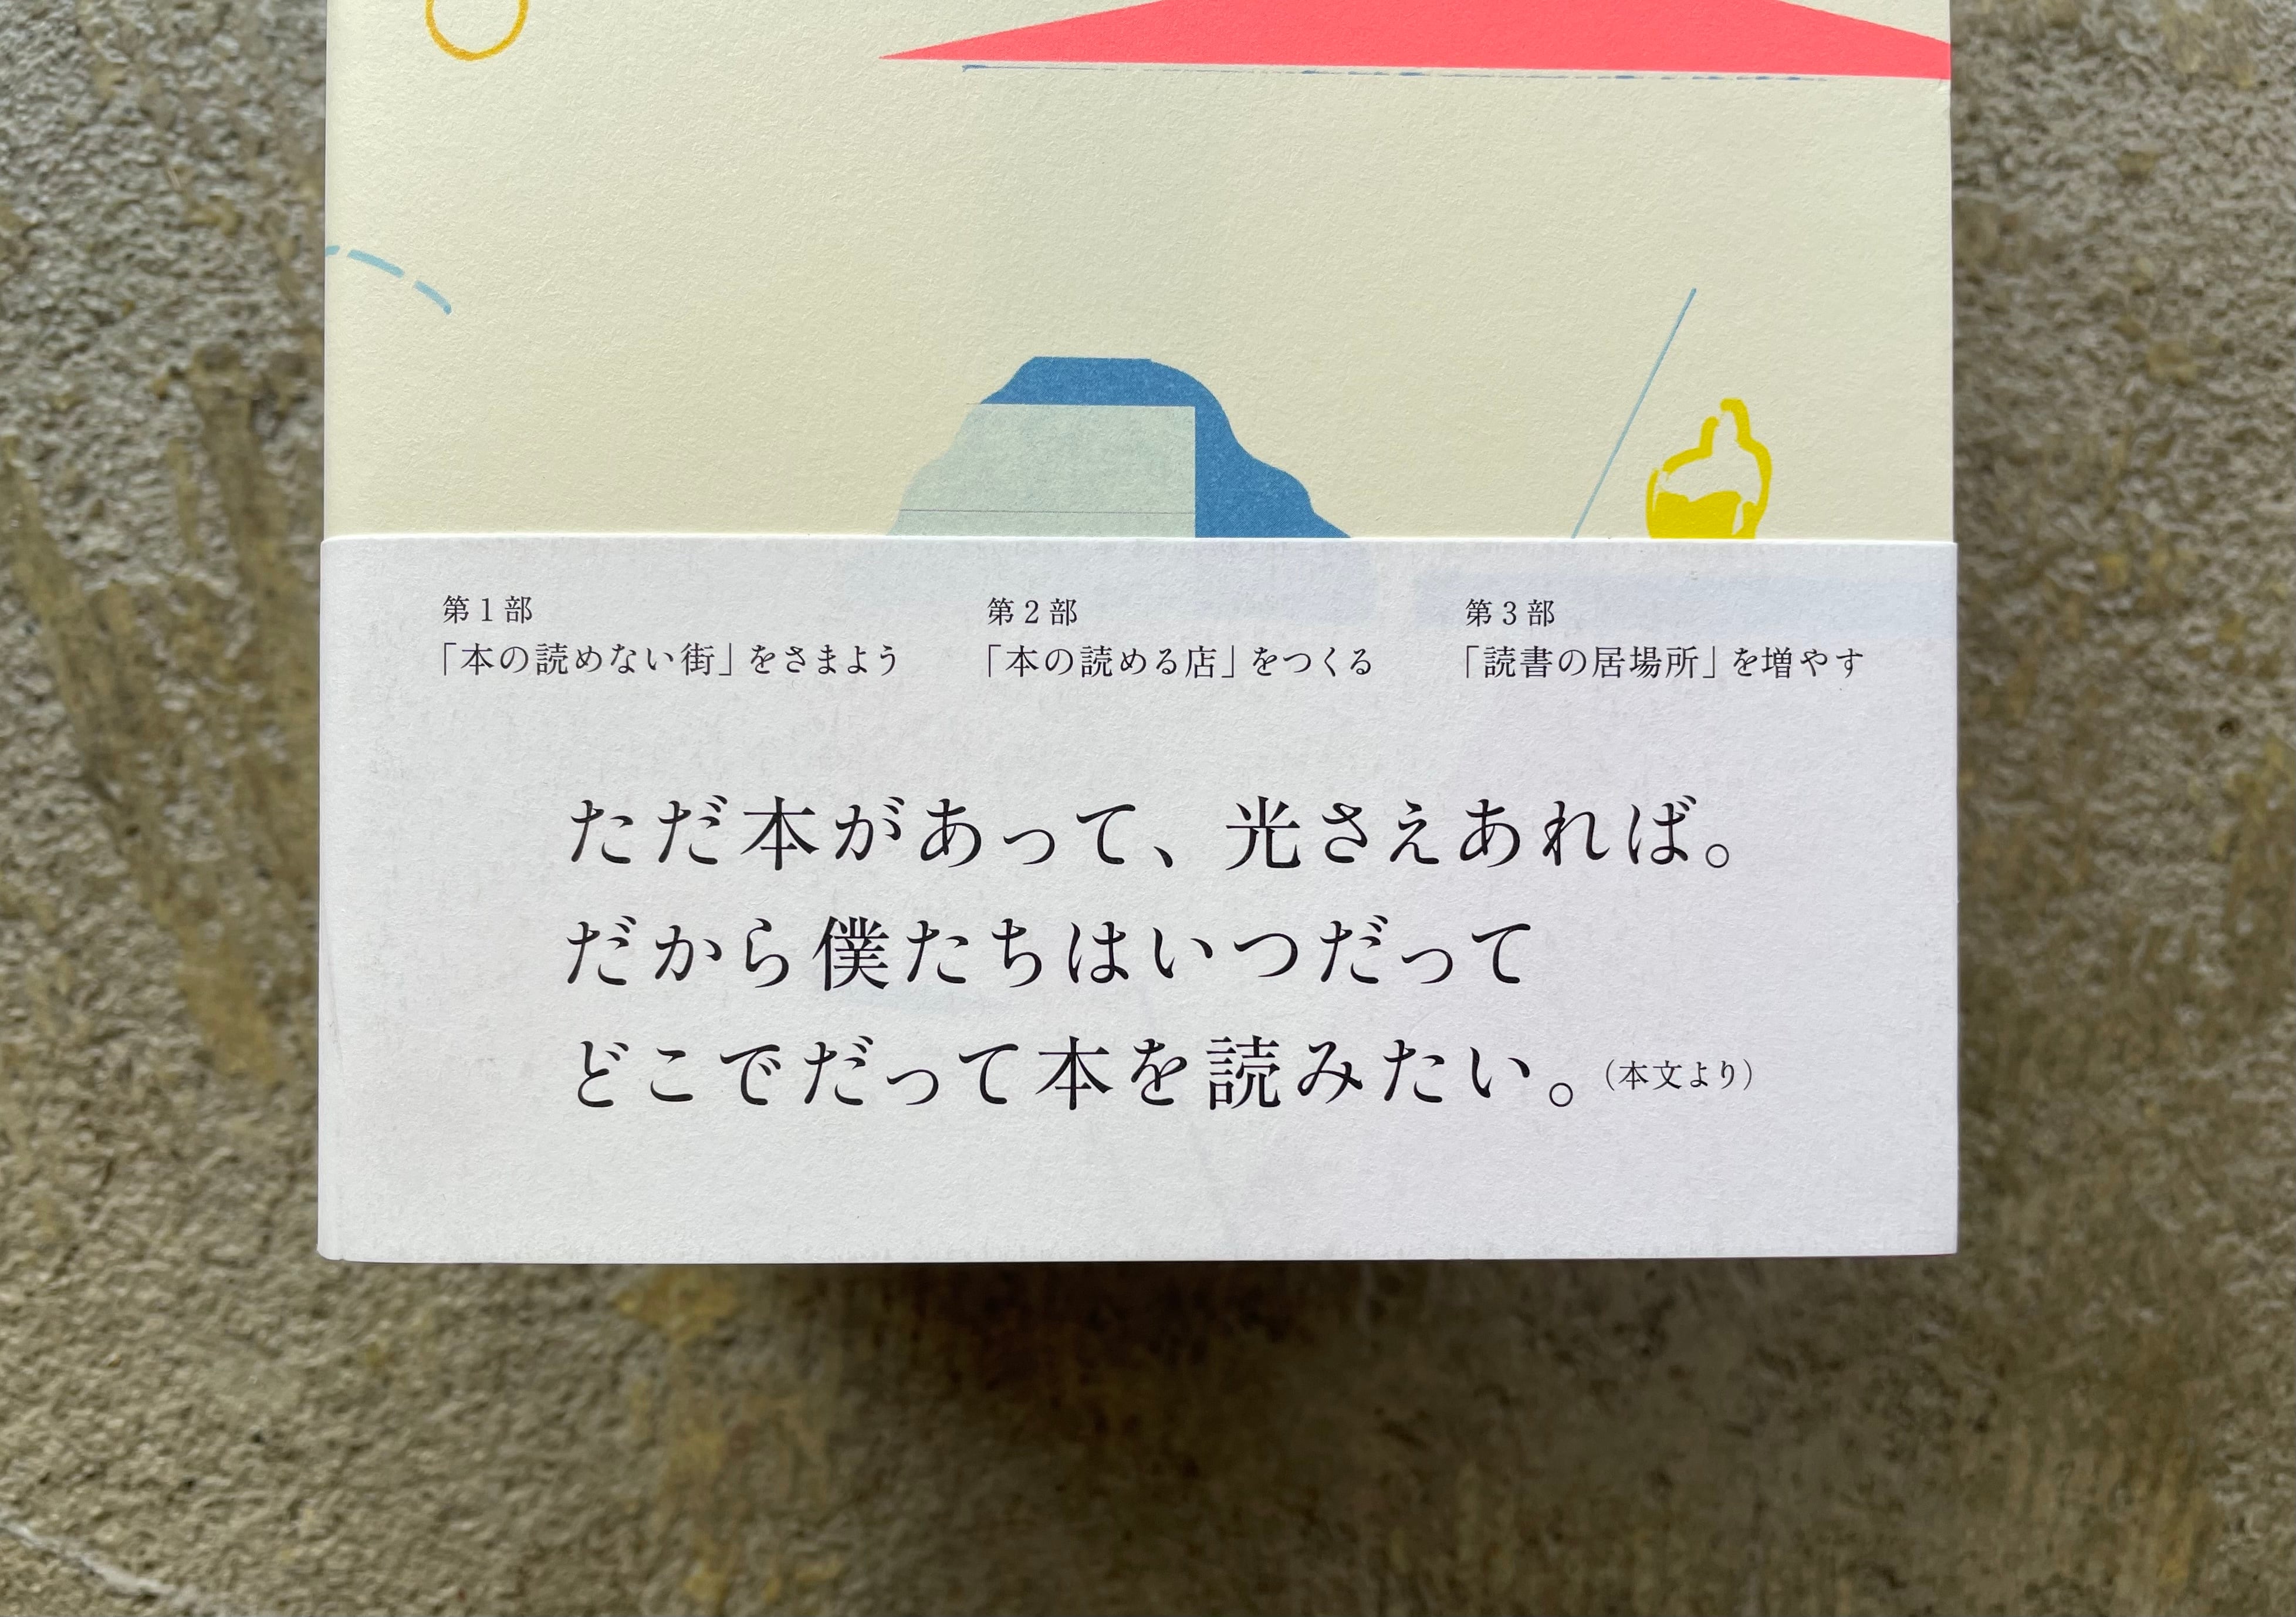 第1部
「本の読めない街」をさまよう
第2部
「本の読める店」をつくる
第3部
「読書の居場所」を増やす
ただ本があって、光さえあれば。
だから僕たちはいつだって
どこでだって本を読みたい。(本文より)